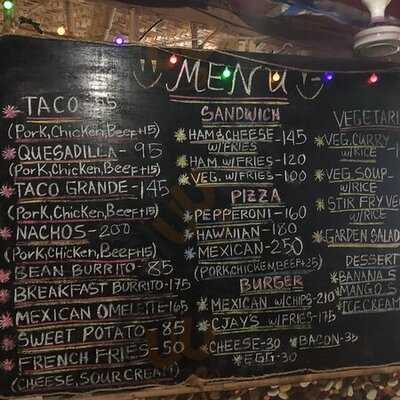 MENU
TACO
(Pork, Chicken, Beef +15)
QUESADILLA - 95
(Pork, Chicken, Beef +15)
TACO GRANDE - 145
(Pork, Chicken, Beef)
NACHOS - 200
(Pork, Chicken, Beef +15)
BEAN BURRITO - 85
BREAKFAST BURRITO - 175
MEXICAN OMELETTE 165
SWEET POTATO - 85
FRENCH FRIES - 50
(CHEESE, SOUR CREAM)
SANDWICH
HAM & CHEESE - 145
W/FRIES
HAM W/FRIES - 120
VEG. W/FRIES - 100
PIZZA
PEPPERONI - 160
HAWAIIAN - 180
MEXICAN - 250
(PORK CHICKEN, BEEF +25)
BURGER
MEXICAN W/CHIPS - 210
CJAY'S W/FRIES - 175
CHEESE - 30 BACON - 35
EGG - 30
VEGETARI
VEG. CURRY
W/RICE
VEG. SOUP -
W/RICE
STIR FRY VE
W/RICE
GARDEN SALAD
DESSERT
BANANA S
MANGO S
ICECREAM